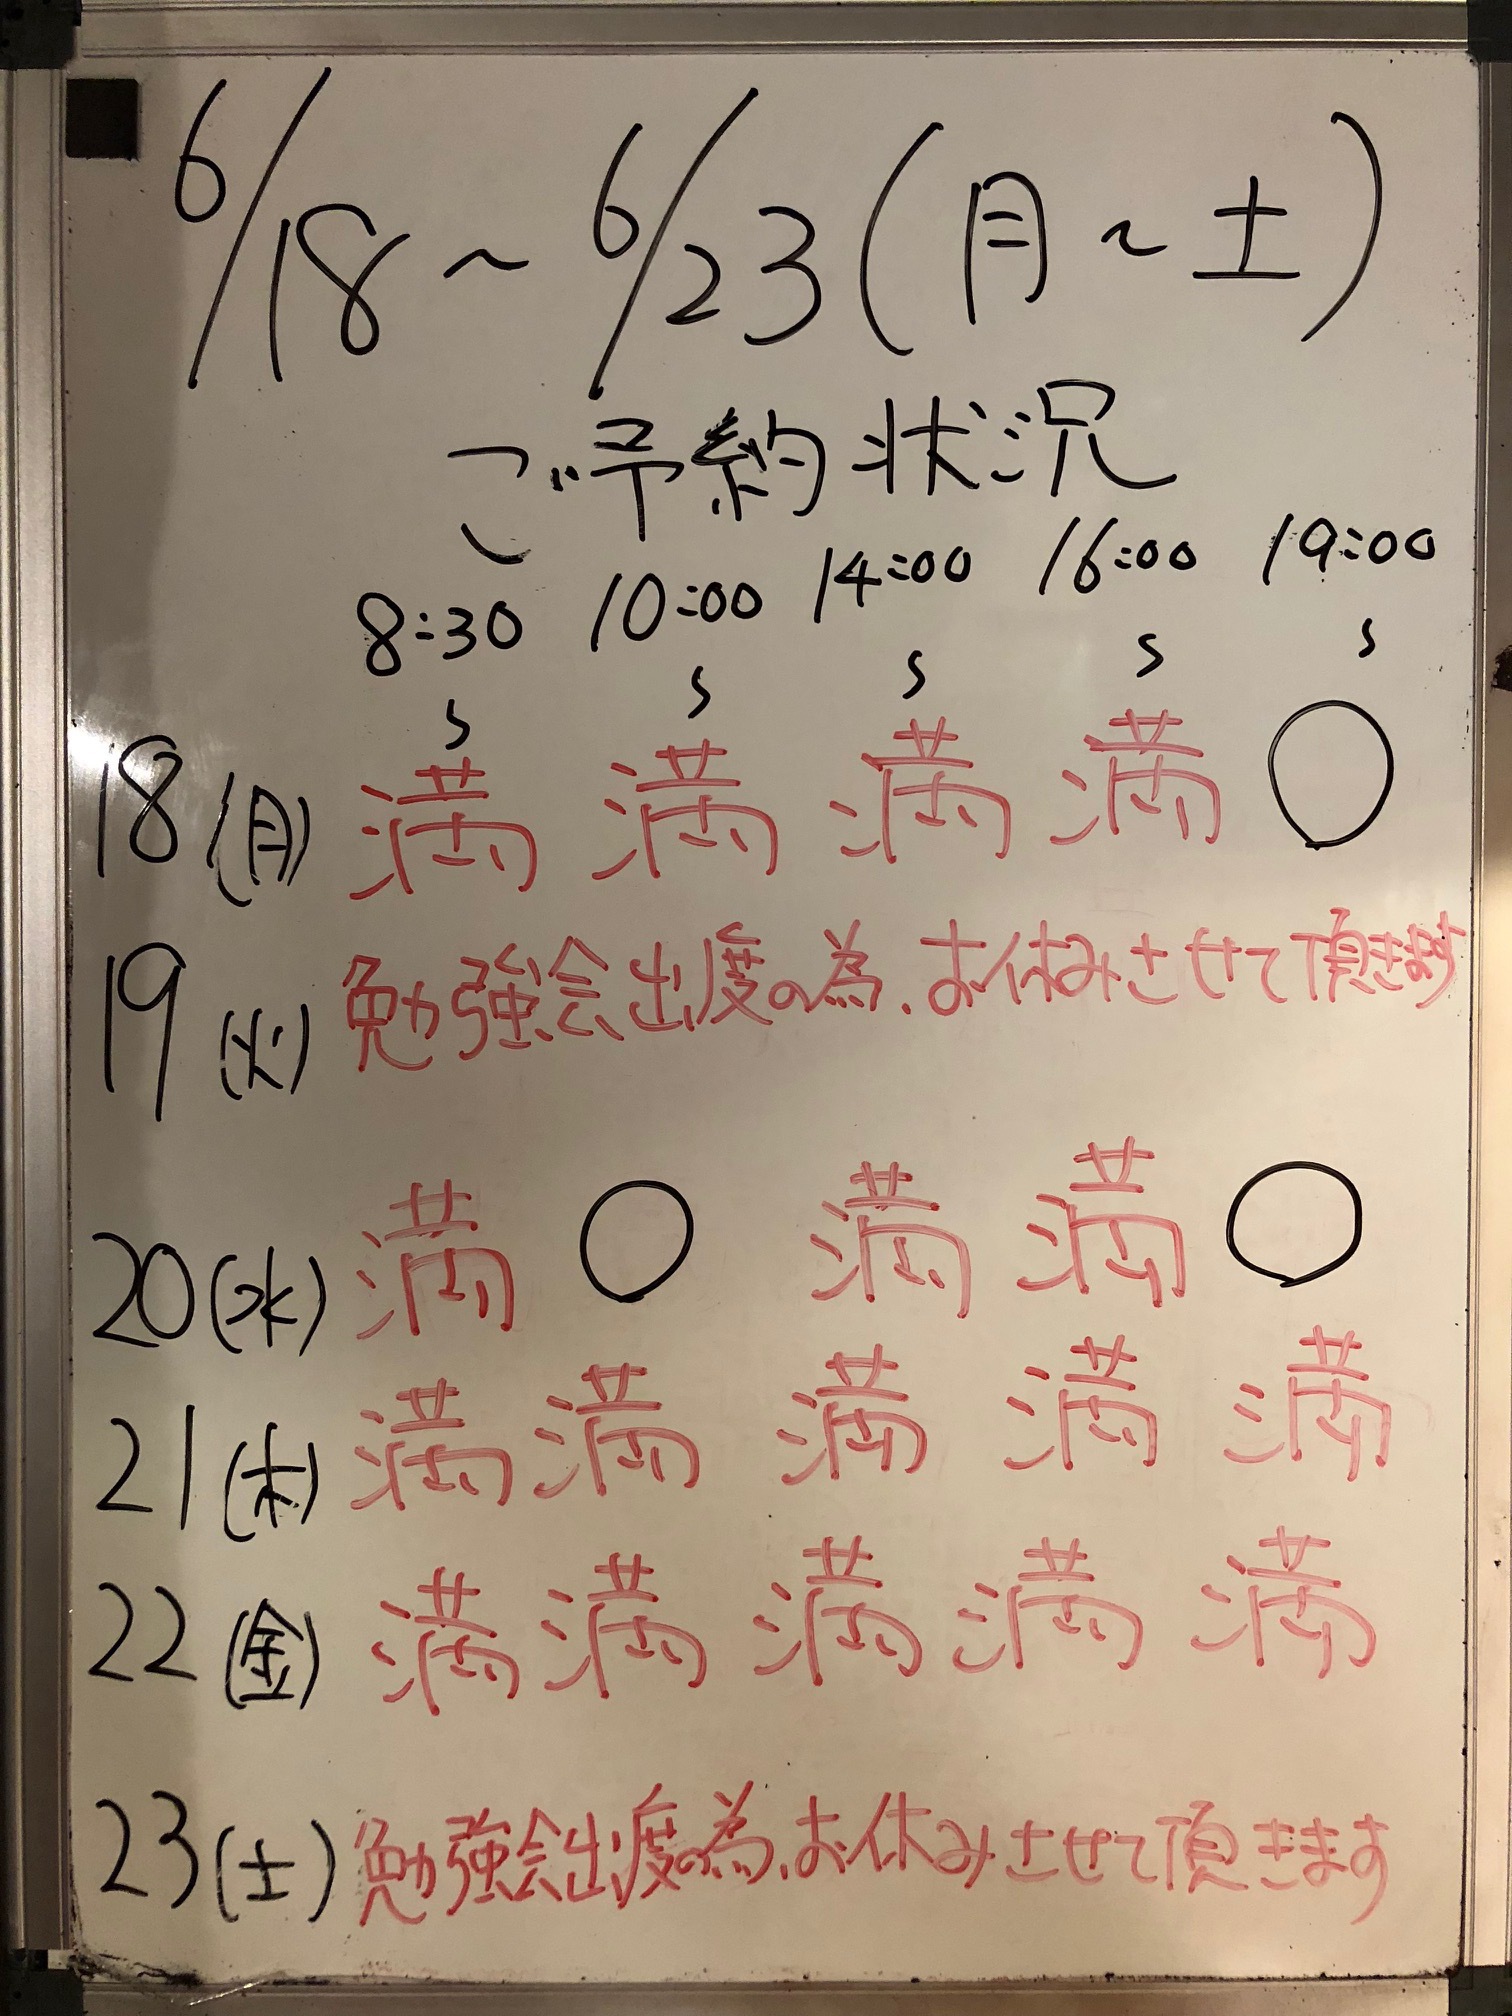 6/18～6/23(月～土)
ご予約状況
8:30～ 10:00～ 14:00～ 16:00～ 19:00～
18(月) 満 満 満 満 ○
19(火) 勉強会出度の為、お休みさせて頂きます
20(水) 満 ○ 満 満 ○
21(木) 満 満 満 満 満
22(金) 満 満 満 満 満
23(土) 勉強会出度の為、お休みさせて頂きます